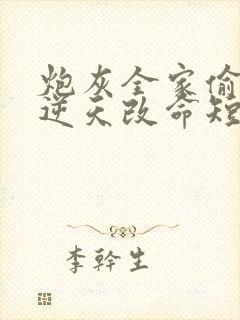 炮灰全家偷
逆天改命短
李幹生